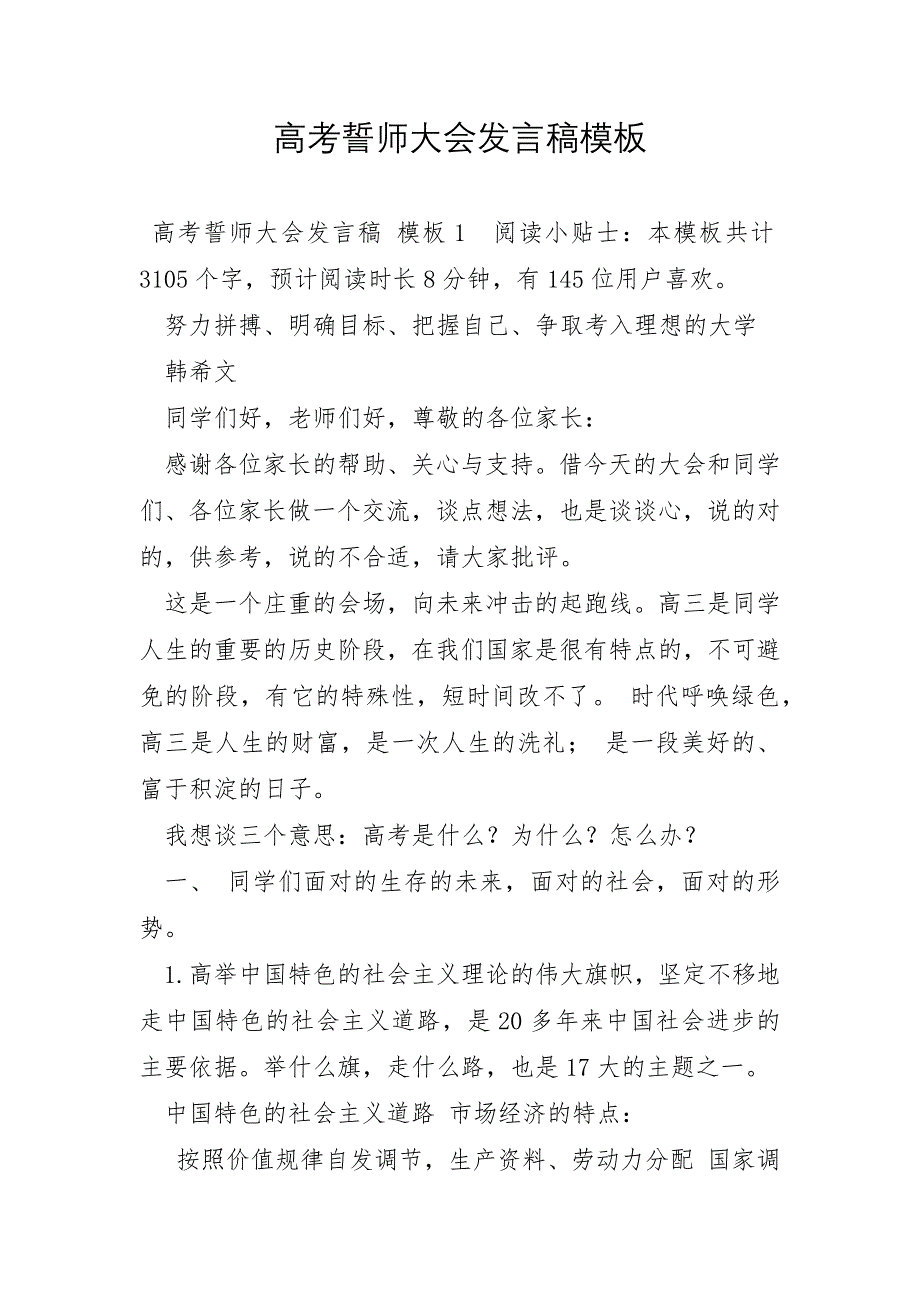 高考誓师大会发言稿模板
高考誓师大会发言稿 模板1 阅读小贴士：本模板共计
3105个字，预计阅读时长8分钟，有145位用户喜欢。
努力拼搏、明确目标、把握自己、争取考入理想的大学
韩希文
同学们好，老师们好，尊敬的各位家长：
感谢各位家长的帮助、关心与支持。借今天的大会和同学
们、各位家长做一个交流，谈点想法，也是谈谈心，说的对
的，供参考，说的不合适，请大家批评。
这是一个庄重的会场，向未来冲击的起跑线。高三是同学
人生的重要的历史阶段，在我们国家是很有特点的，不可避
免的阶段，有它的特殊性，短时间改不了。 时代呼唤绿色，
高三是人生的财富，是一次人生的洗礼； 是一段美好的、
富于积淀的日子。
我想谈三个意思：高考是什么？为什么？怎么办？
一、 同学们面对的生存的未来，面对的社会，面对的形
势。
1.高举中国特色的社会主义理论的伟大旗帜，坚定不移地
走中国特色的社会主义道路，是20多年来中国社会进步的
主要依据。举什么旗，走什么路，也是17大的主题之一。
中国特色的社会主义道路 市场经济的特点：
按照价值规律自发调节，生产资料、劳动力分配 国家调